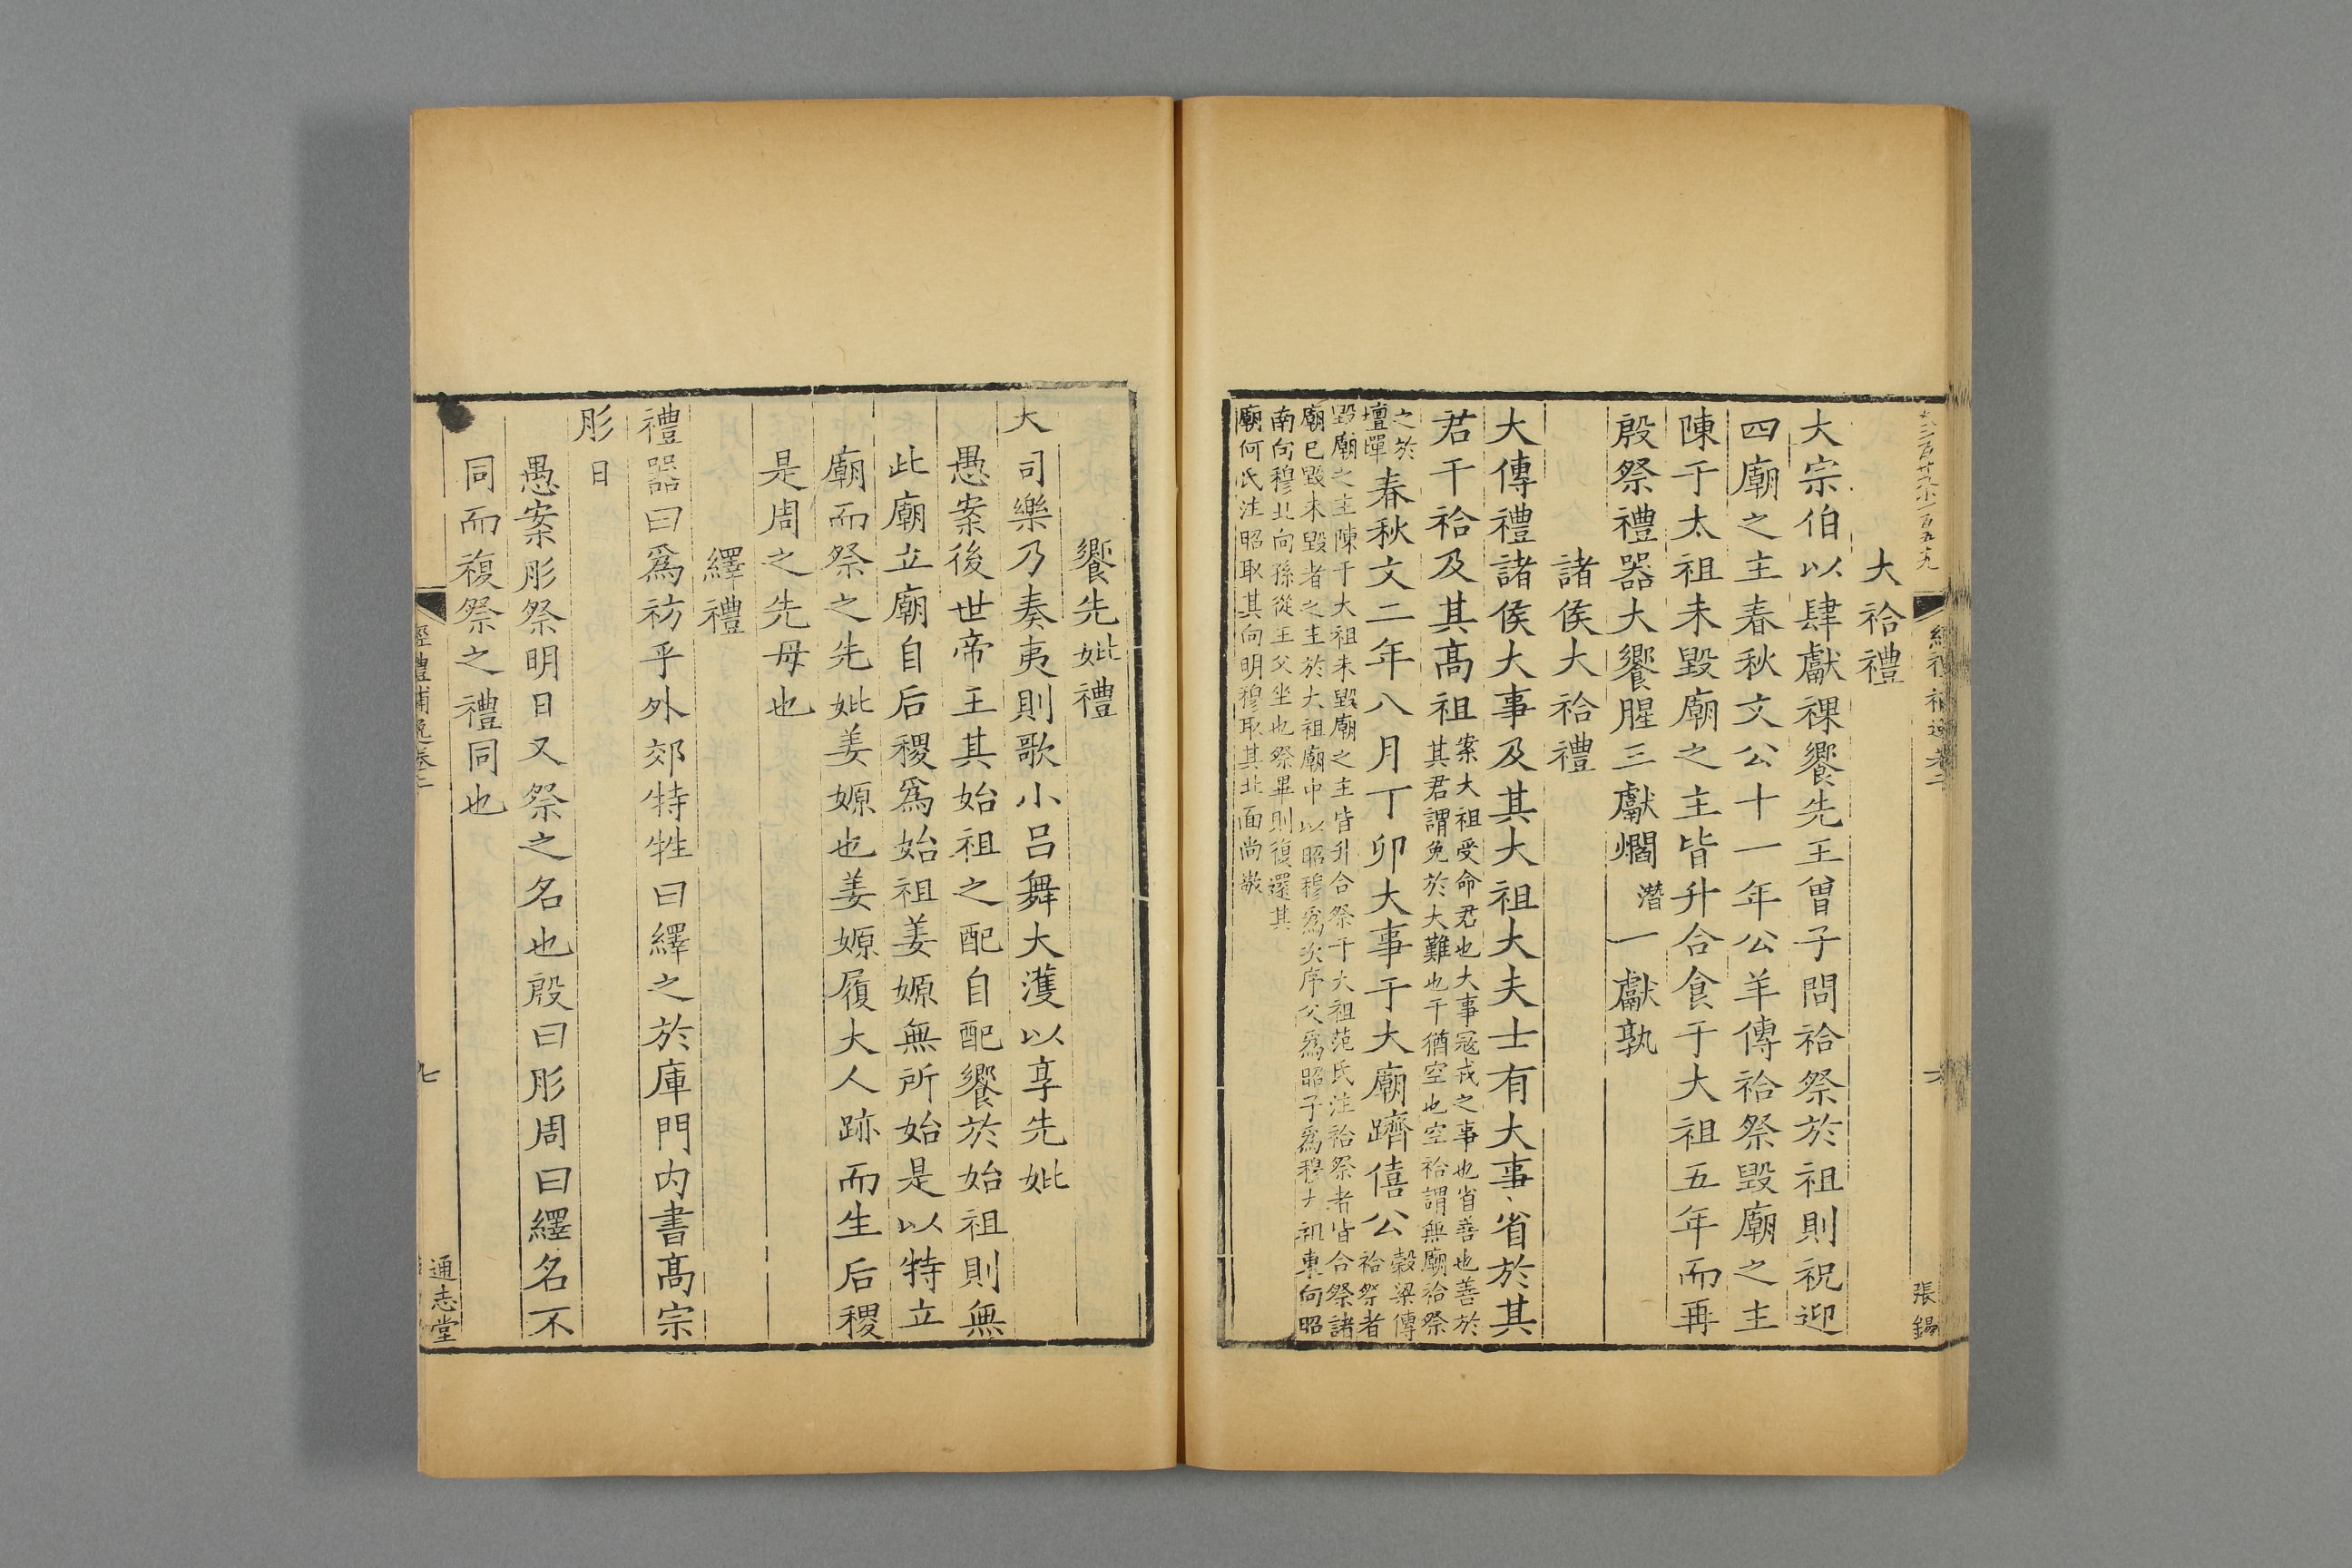 大祫禮
大宗伯以肆獻祼饗先王曾子問祫祭於祖則祝迎
四廟之主春秋文公十一年公羊傳祫祭毀廟之主
陳于太祖未毀廟之主皆升合食于大祖五年而再
殷祭禮器大饗腥三獻爓潛一獻孰
諸侯大祫禮
大傳禮諸侯大事及其大祖大夫士有大事省於其
君干祫及其髙祖案大祖受命君也大事寇戎之事也省善也善於
其君謂免於大難也干猶空也空祫謂無廟祫祭
之於
壇墠春秋文二年八月丁卯大事于大廟躋僖公穀梁傳
祫祭者
毀廟之主陳于大祖未毀廟之主皆升合祭于大祖范氏注祫祭者皆合祭諸
廟巳毀未毀者之主於大祖廟中以昭穆爲次序父爲昭子爲穆大祖東向昭
南向穆北向孫從王父坐也祭畢則復還其
廟何氏注昭取其向明穆取其北面尚敬
張錫
饗先妣禮
大司樂乃奏夷則歌小呂舞大濩以享先妣
愚案後世帝王其始祖之配自配饗於始祖則無
此廟立廟自后稷爲始祖姜嫄無所始是以特立
廟而祭之先妣姜嫄也姜嫄履大人跡而生后稷
是周之先母也
繹禮
禮器曰爲祊乎外郊特牲曰繹之於庫門内書髙宗
肜日
愚案肜祭明日又祭之名也殷曰肜周曰繹名不
同而複祭之禮同也
經禮補逸卷二
九
通志堂